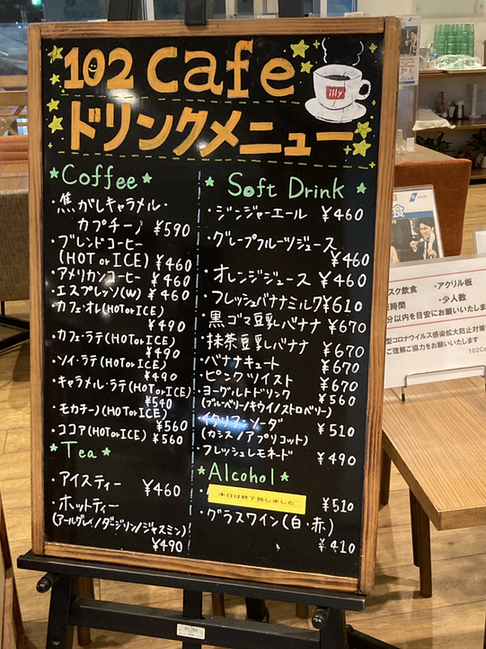 102 cafe
illy
ドリンクメニュー
Coffee
・焦がしキャラメル・
カプチーノ ¥590
・ブレンドコーヒー
(HOT or ICE) ¥460
・アメリカンコーヒー ¥460
・エスプレッソ(W) ¥460
・カフェ・オレ(HOT or ICE)
¥490
・カフェ・ラテ(HOT or ICE)
¥490
・ソイ・ラテ(HOT or ICE)
¥490
・キャラメル・ラテ(HOT or ICE)
¥540
・モカチーノ(HOT or ICE)
¥560
・ココア(HOT or ICE) ¥560
Tea
・アイスティー ¥460
・ホットティー
(アールグレイ/ダージリン/ジャスミン)
¥490
Soft Drink
・ジンジャーエール ¥460
・グレープフルーツジュース
¥460
・オレンジジュース ¥460
・フレッシュバナナミルク ¥610
・黒ゴマ豆乳バナナ ¥670
・抹茶豆乳バナナ ¥670
・バナナキュート ¥670
・ピンクツイスト ¥670
・ヨーグルトドリンク ¥560
(ブルーベリー/キウイ/ストロベリー)
・イタリアンソーダ ¥510
(カシス/アプリコット)
・フレッシュレモネード ¥490
Alcohol
本日は終了致しました
¥510
・グラスワイン(白・赤)
¥410
スク飲食 ・アクリル板
時間 ・少人数
分以内を目安にお願いいたします
型コロナウイルス感染拡大防止対策
ご理解ご協力をお願いいたします